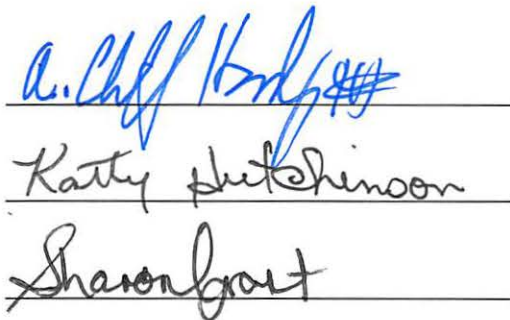 a. Chf
Kathy Hutchinson
Sharon Grant